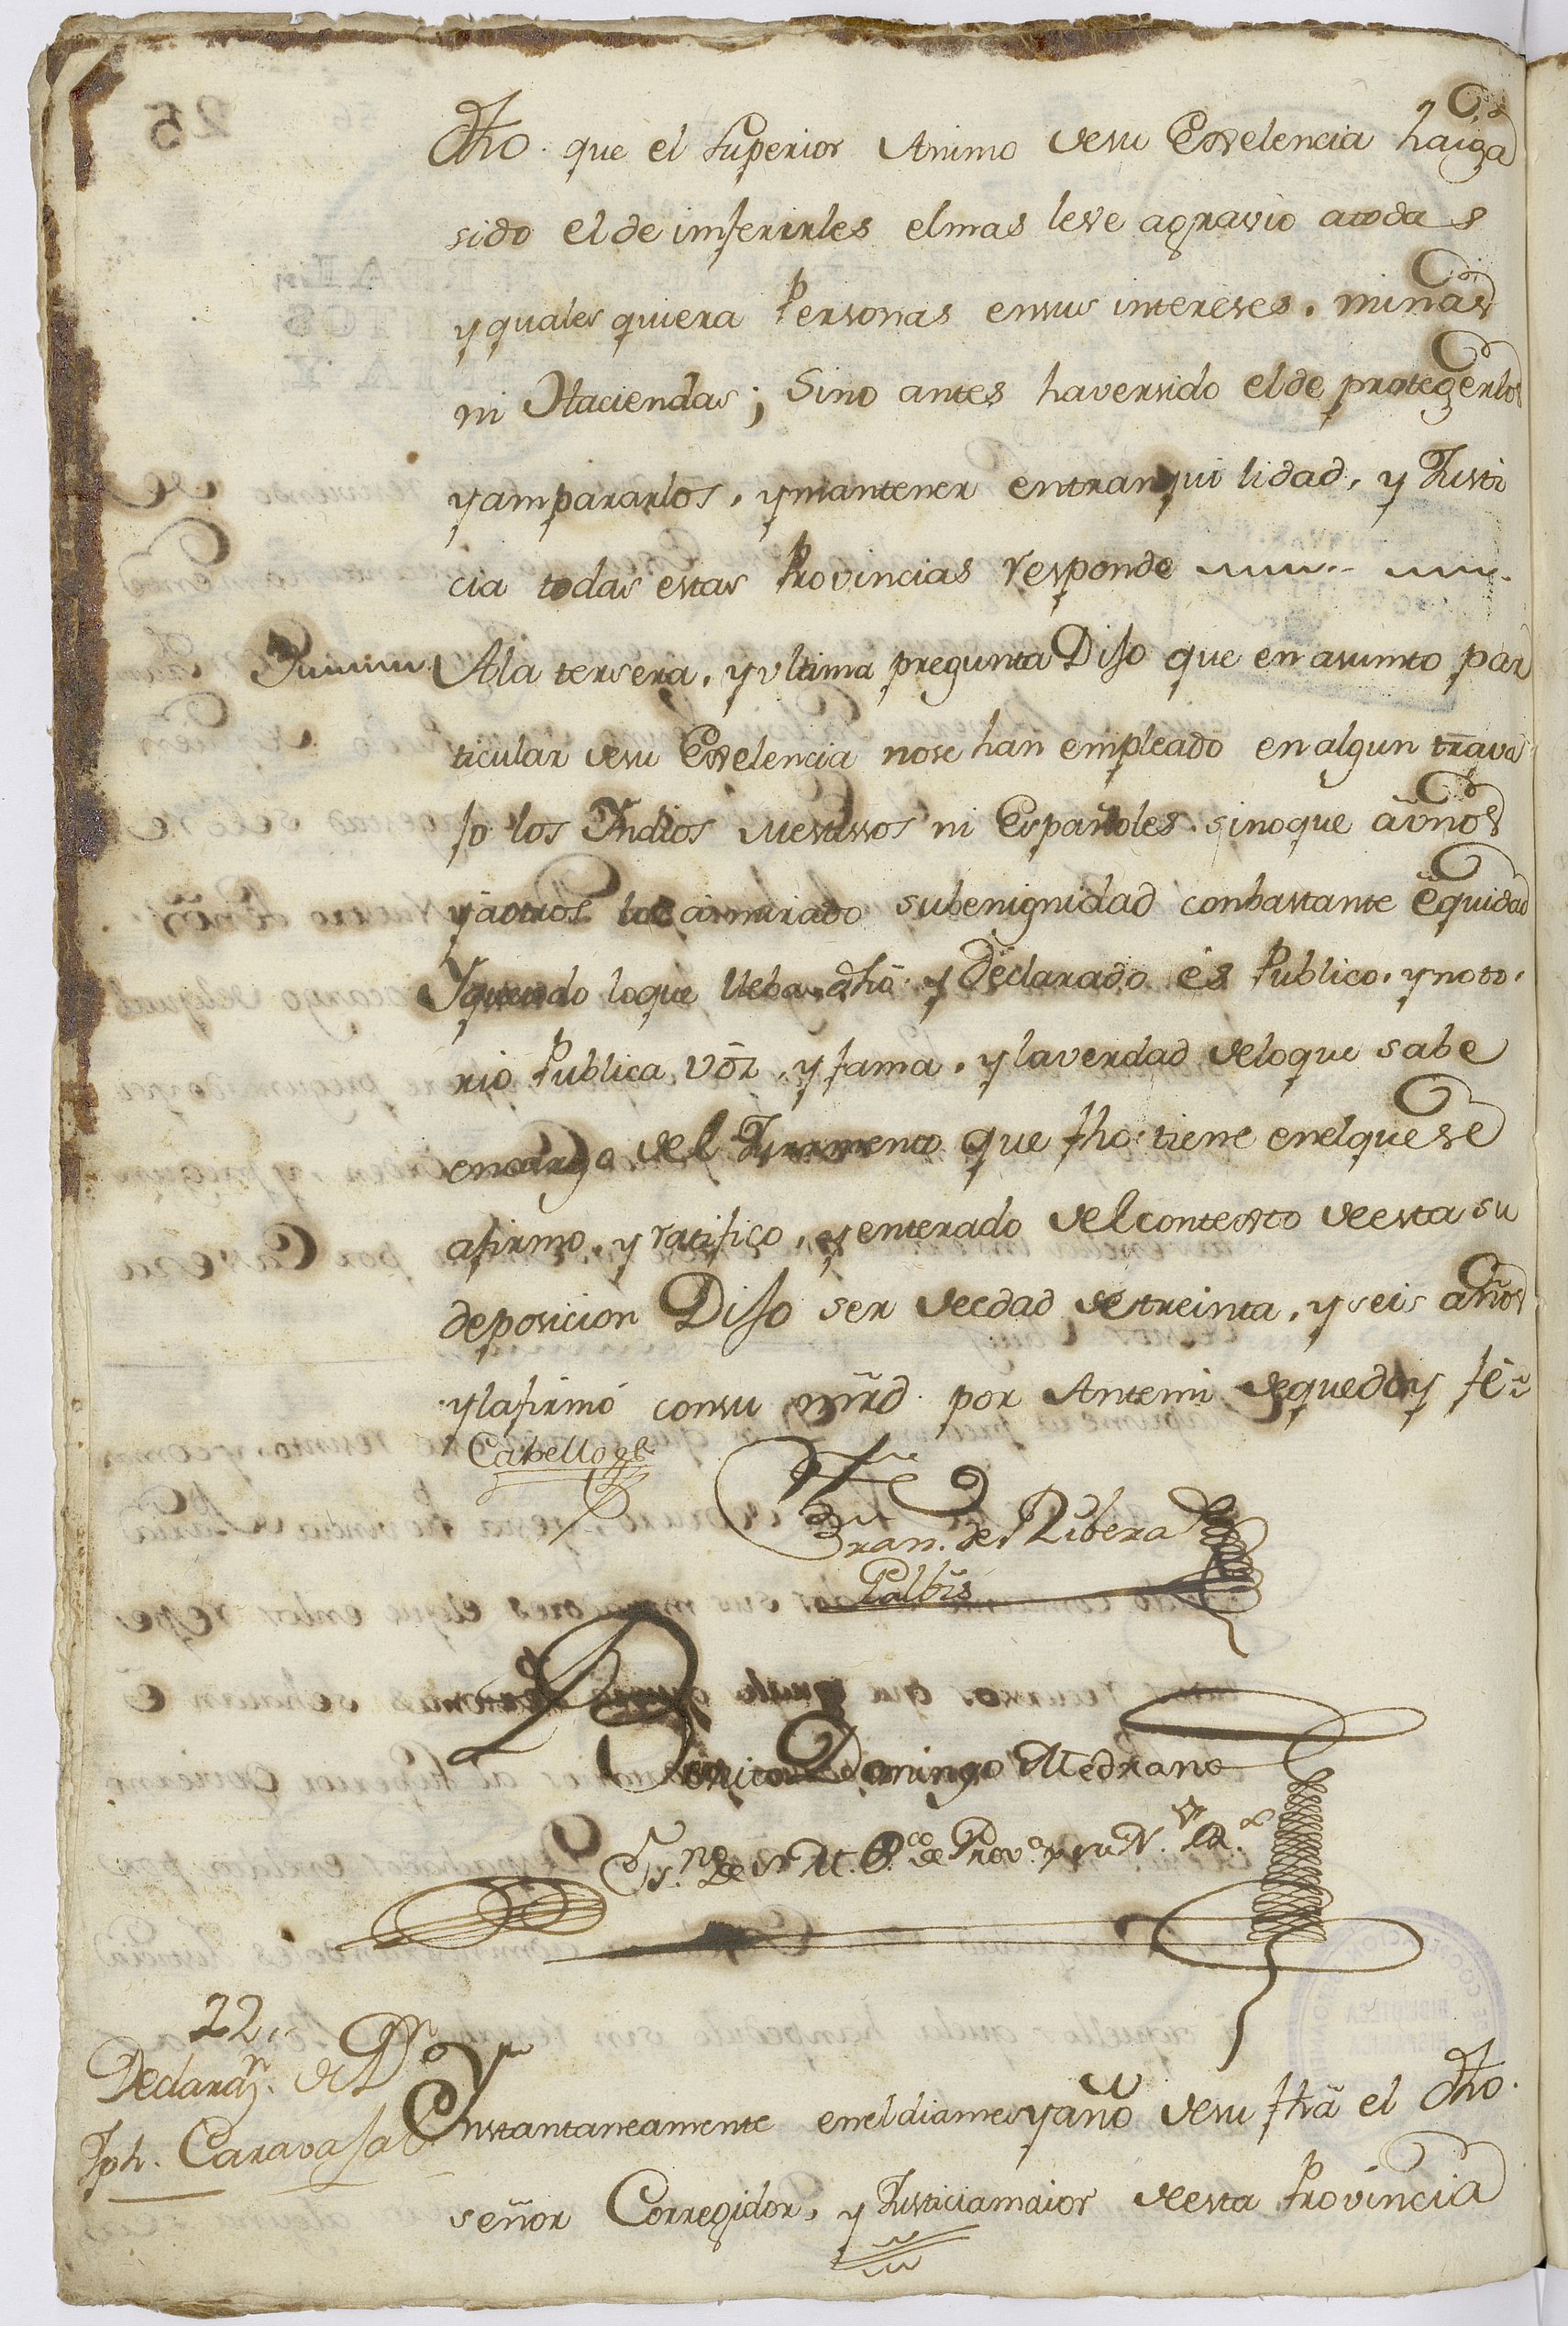 dho. que el superior Animo desu Exelencia haiga
sido el de inferirles elmas leve agravio atodas
yquales quiera Personas ensus intereses, minas
ni Haciendas; Sino antes haversido elde protegerlos
yampararlos, ymantener entranquilidad, y Justi
cia todas estas Provincias responde
3 Ala tersera, yultima pregunta Dijo que en asunto par
ticular desu Exelencia nose han empleado en algun trava
jo los Yndios Mestissos ni Españoles, sinoque aunos
yaotros los amirado subenignidad conbastante equidad
Yquetodo loque lleba dho. y Declarado es Publico, ynoto
rio Publica voz, yfama, ylaverdad deloque sabe
encargo del Juramento que fho. tiene enelquese
afirmo, y ratifico, yenterado delcontexto deesta su
deposicion Dijo ser deedad detreinta, yseis años
ylafirmó consu mrd. por Antemi dequedoy fé
Cabello
Fran. de Ribera
Galbis
Domingo Medrano
Essno. de S. M. Pco. de Prova. y su N.
22
Declaran. de Dn.
Jph. Caravajal
Ynstantaneamente eneldiamesyaño desu fha el dho.
señor Corregidor, y Justiciamaior deesta Provincia